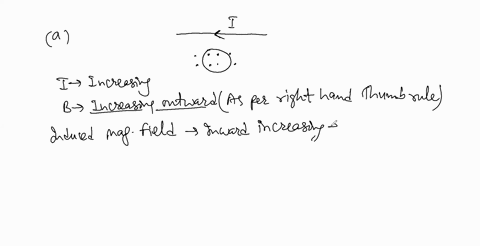 I
(a)
I → Increasing
B → Increasing outward (As per right hand Thumb rule)
Induced mag. field → Inward increasing